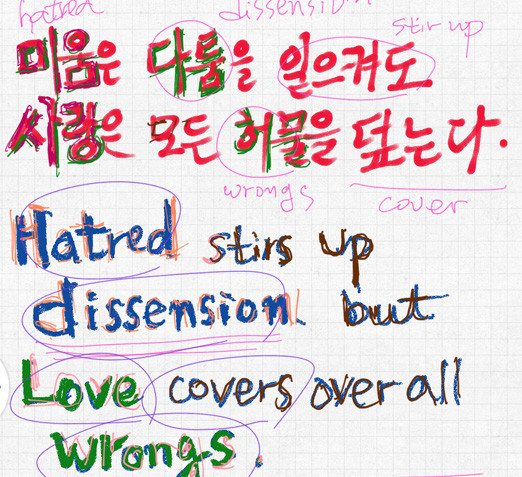 hatred dissension stir up
미움은 다툼을 일으켜도
사랑은 모든 허물을 덮는다.
wrongs cover
Hatred stirs up
dissension. but
Love covers over all
wrongs.